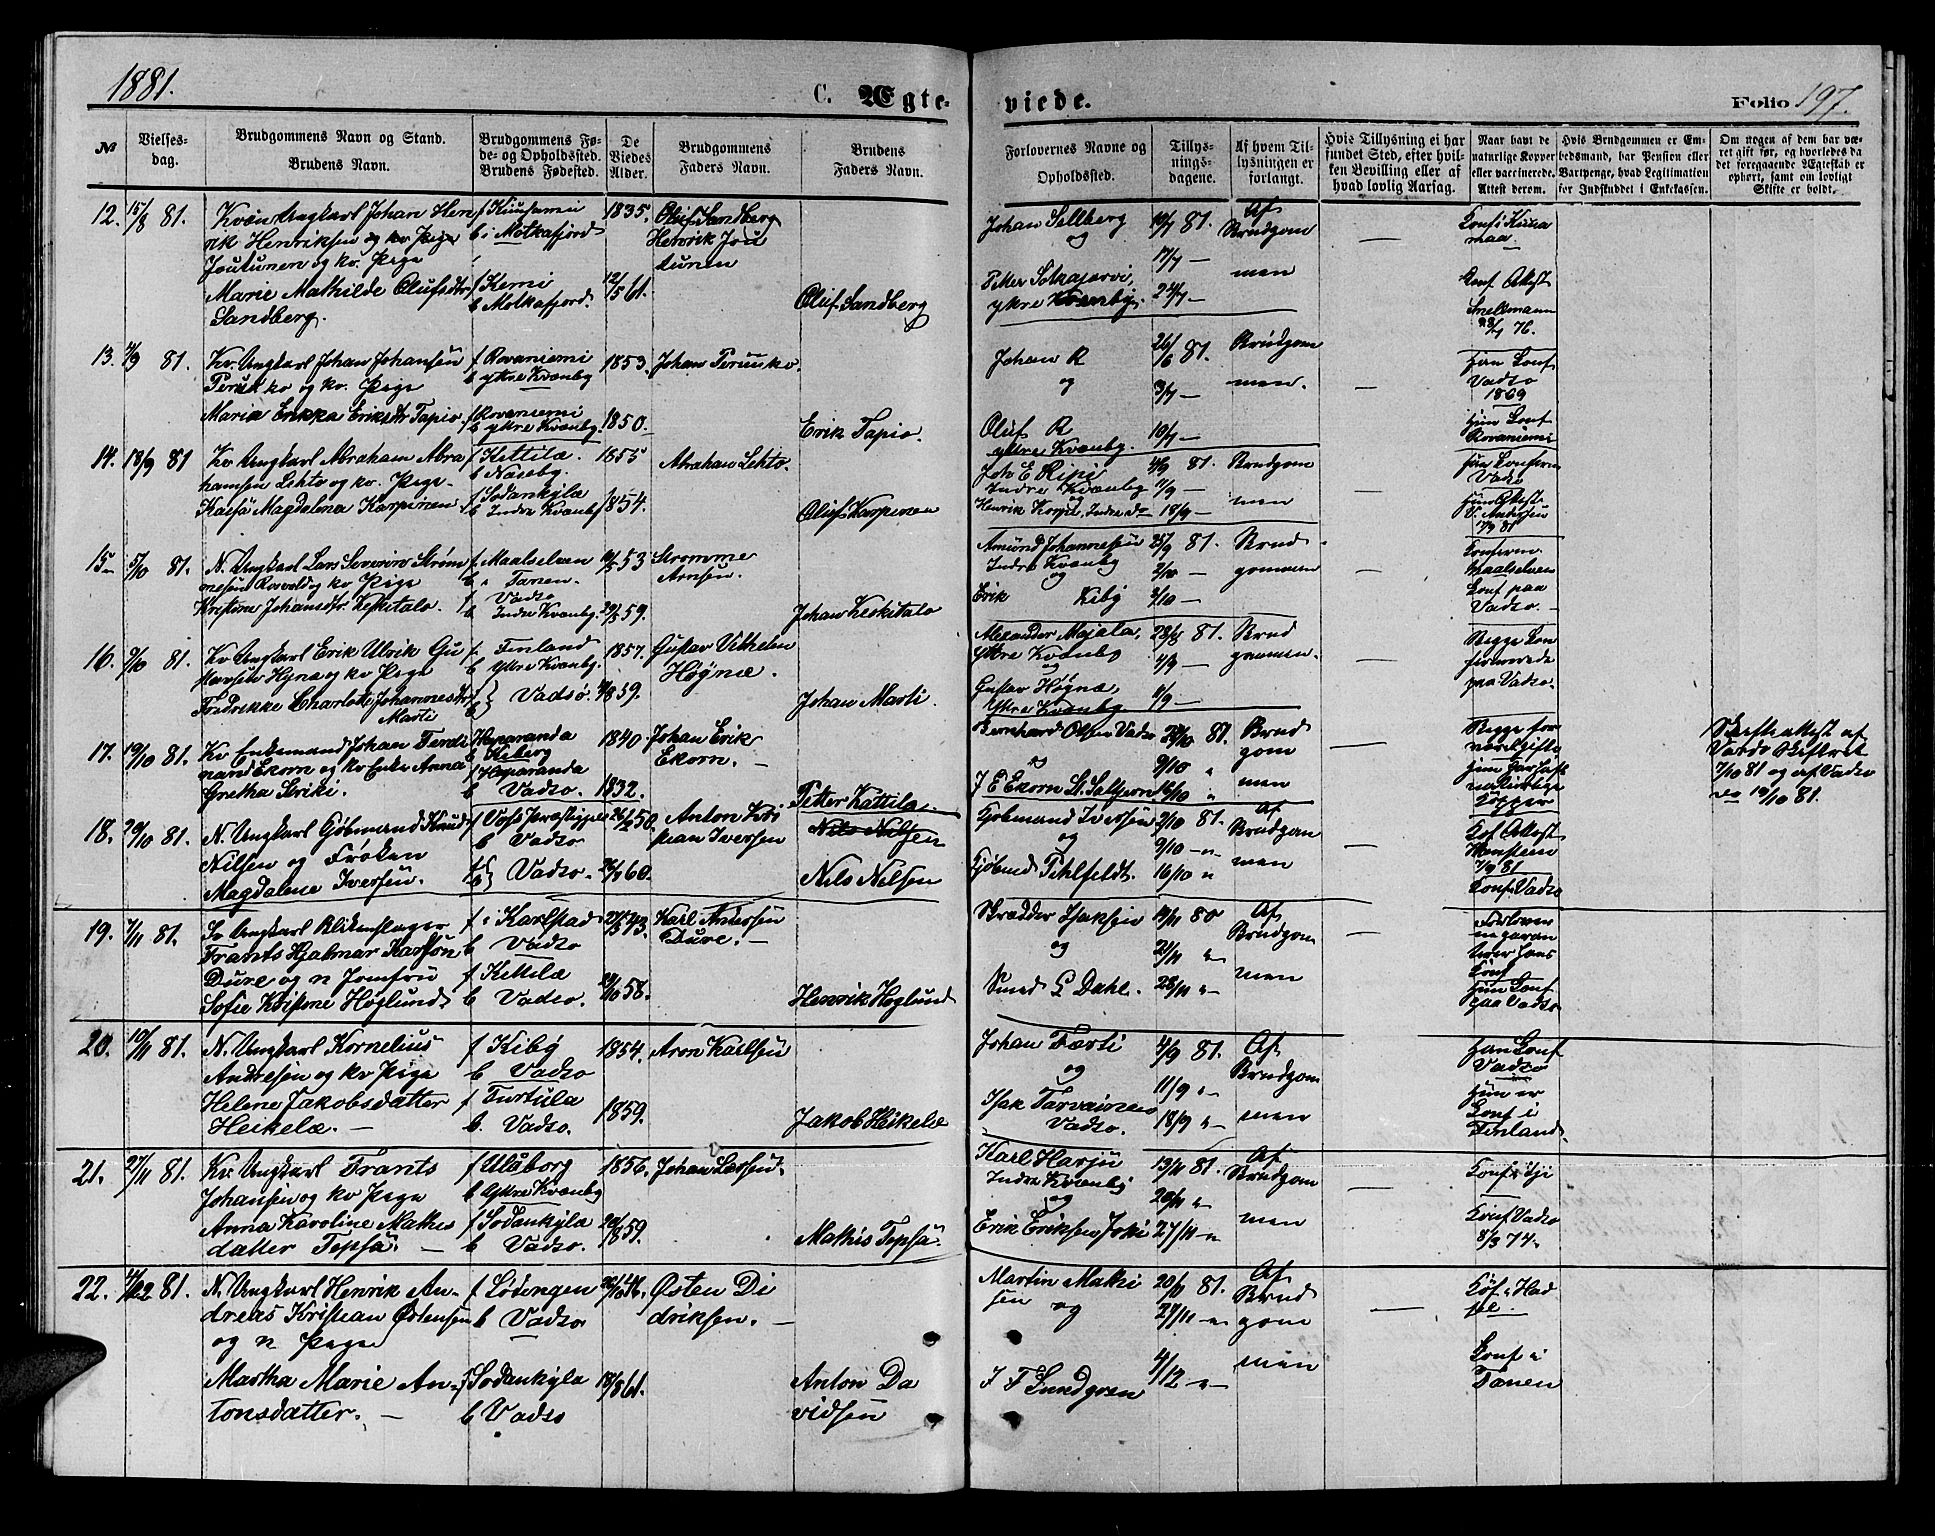 1881.
C. Ægte-
viede.
Folio 197.
№
Vielses-
dag.
Brudgommens Navn og Stand.
Brudens Navn.
Brudgommens Fø-
de- og Opholdssted.
Brudens Fødested.
De
Viedes
Alder.
Brudgommens
Faders Navn.
Brudens
Faders Navn.
Forlovernes Navne og
Opholdssted.
Tillys-
nings-
dagene.
Af hvem Til-
lysningen er
forlangt.
Hvis Tillysning ei har
fundet Sted, efter hvil-
ken Bevilling eller af
hvad lovlig Aarsag.
Naar havt de
naturlige Kopper
eller vaccinerede.
Attest derom.
Hvis Brudgommen er Em-
bedsmand, har Pension eller
Vartpenge, hvad Legitimation
for Indskuddet i Enkekassen.
Om nogen af dem har væ-
ret gift før, og hvorledes da
det foregaaende Ægteskab er
ophørt, samt om lovligt
Skifte er holdt.
12. 15/8 81. Kvæn Ungkarl Johan Hen
rik Henriksen og kv Pige
Joutunen og kv. Pige
Marie Mathilde Olufsdtr
Sandberg.
f Kuusamo
b i Motkafjord
f Kemi
b Motkafjord.
1835.
12/5 61.
Oluf Sandberg
Henrik Jou
tunen
Oluf Sandberg
Johan Sellberg
og
Petter Sotkajærvi,
ytre Kvænby.
10/7 81.
17/7 —
24/7 —
Af
Brudgom
men
Conf i Kuusa
maa
Conf. Attest
Snellmann
76.
13. 4/9 81. Kv. Ungkarl Johan Johansen
Perukko og kv. Pige
Maria Erikka Eriksdtr Tapio.
f Rovaniemi
b ytre Kvænby
f Rovaniemi
b ytre Kvænby.
1853.
1850.
Johan Perukko.
Erik Tapio.
Johan R
og
Oluf R
ytre Kvænby.
26/6 81.
3/7 —
10/7 —
Brudgom
men.
Han Conf
Vadsø
1869
Hun Conf
Rovaniemi
14. 18/9 81 Kv Ungkarl Abraham Abra
hamsen Lehto og kv. Pige
Kaisa Magdalena Karpinen
f Kittilæ.
b Næseby.
f Sodankylæ
b Indre Kvænby
1855
1854.
Abraham Lehto.
Oluf Karpinen
Joh E Ripi
Indre Kvænby
og
Henrik Korpi, Indre do
4/9 81.
11/9 —
18/9 —
Brudgom
men
Han Conferm
Vadsø
Hun Attest
V. Andersen
17/9 81
15 5/10 81. N. Ungkarl Lars Severin Strøm
mesen Rosvold og kv Pige
Kristine Johansdtr. Keskitalo.
f. Maalselven
b i Tanen.
f. Vadsø
b Indre Kvænby.
53
59.
Strømme
Arnsen.
Johan Keskitalo
Amund Johannesen
Indre Kvænby
og
Erik Kiby
25/9 81.
2/10 —
3/10 —
Brud
gommen
Conferm.
Maalselven
Conf paa
Vadsø. —
16. 9/10 81. Kv Ungkarl Erik Ulrik Gu
stavsen Hynæ og kv Pige
Fredrikke Charlotte Johannesdtr
Marti
f. Finland
b Ytre Kvænby.
f
b } Vadsø.
1857.
59.
Gustav Vilhelm
Høgnæ.
Johan Marti.
Alexander Majala,
Ytre Kvænby
og
Gustav Høgnæ,
Ytre Kvænby.
28/8 81.
4/9 —
11/9 —
Brud
gommen.
Begge Con
firmerede
paa Vadsø.
17. 19/10 81. Kv Enkemand Johan Ferdi
nand Ekorn og kv Enke Anna
Gretha Seriki.
f Haparanda
b Kiberg
f Haparanda
b Vadsø.
1840.
1832.
Johan Erik
Ekorn. —
Petter Kattila.
Bernhard Olsen Vadsø
og
J E Ekorn L. Saltjern.
2/10 81.
9/10 "
16/10 "
Brud
gom
men
Begge for
været gifte
Hun har haft
naturlige
Kopper
Skifteattest af
Vardø Skifteret
7/10 81 og af Vadsø
do 19/10 81.
18. 29/10 81. N. Ungkarl Gjøbmand Knud
Nilsen og Frøken
Magdalene Iversen.
f Vofs Præstegjel
b Vadsø
f
b } Vadsø.
50.
60.
Anton Kri
stian Iversen
Nils Nilsen
Nils Nilsen
Gjøbmand Iversen
og
Gjøbmd Pehlfeldt.
2/10 81.
9/10 —"—
16/10 "
Af
Brudgom
men
Kof Attest
7/9 81
Conf. Vadsø
19. 7/11 81. Sv Ungkarl Blikenslager
Frants Hjalmar Karlson
Dure og n Jomfru
Sofie Kristine Høglund
f. i Karlstad
b Vadsø
f Kittilæ
b Vadsø.
43.
58.
Karl Andersen
Dure. —
Henrik Høglund
Skrædder Isaksen
og
Smed G Dahl.
14/11 80
21/11 "
28/11 "
Af
Brudgom
men
Forlover
ne garan
terer hans
Conf
Hun Conf
paa Vadsø
20. 10/11 81. N. Ungkarl Kornelius
Andresen og kv Pige
Helene Jakobsdatter
Heikelæ. —
f Kiby
b Vadsø
f Turtula
b. Vadsø.
1854.
1859.
Aron Karlsen
Jakob Heikelæ
Johan Færti
og
Isak Tarvainen
Vadsø.
4/9 81.
11/9 "
18/9 "
Af
Brudgom
men
Han Conf
Vadsø
Hun er
Conf i
Finland.
21. 27/11 81. Kv. Ungkarl Frants
Johansen og kv Pige
Anna Karoline Mathis
datter Tepsa. —
f Uleåborg
b Ytre Kvænby
f Sodankylæ
b Vadsø.
1856.
59.
Johan Larsen.
Mathis Tepsa.
Karl Harju
Indre Kvænby
og
Erik Eriksen Joki
13/11 81.
20/11 "
27/11 "
Af
Brudgom
men
Conf i Iji
Conf. Vadsø
8/3 74.
22. 4/12 81. N. Ungkarl Henrik An-
dreas Kristian Østensen
og n Pige
Martha Marie An-
tonsdatter. —
f Lødingen
b Vadsø
f Sodankyla
b Vadsø
46.
18/8 61.
Østen Di
driksen. —
Anton Da
vidsen
Martin Mathi
sen
og
J F Sundgren
20/11 81.
27/11 "
4/12 "
Af
Brud
gom
men
Kof. i Had
sel.
Conf i
Tanen